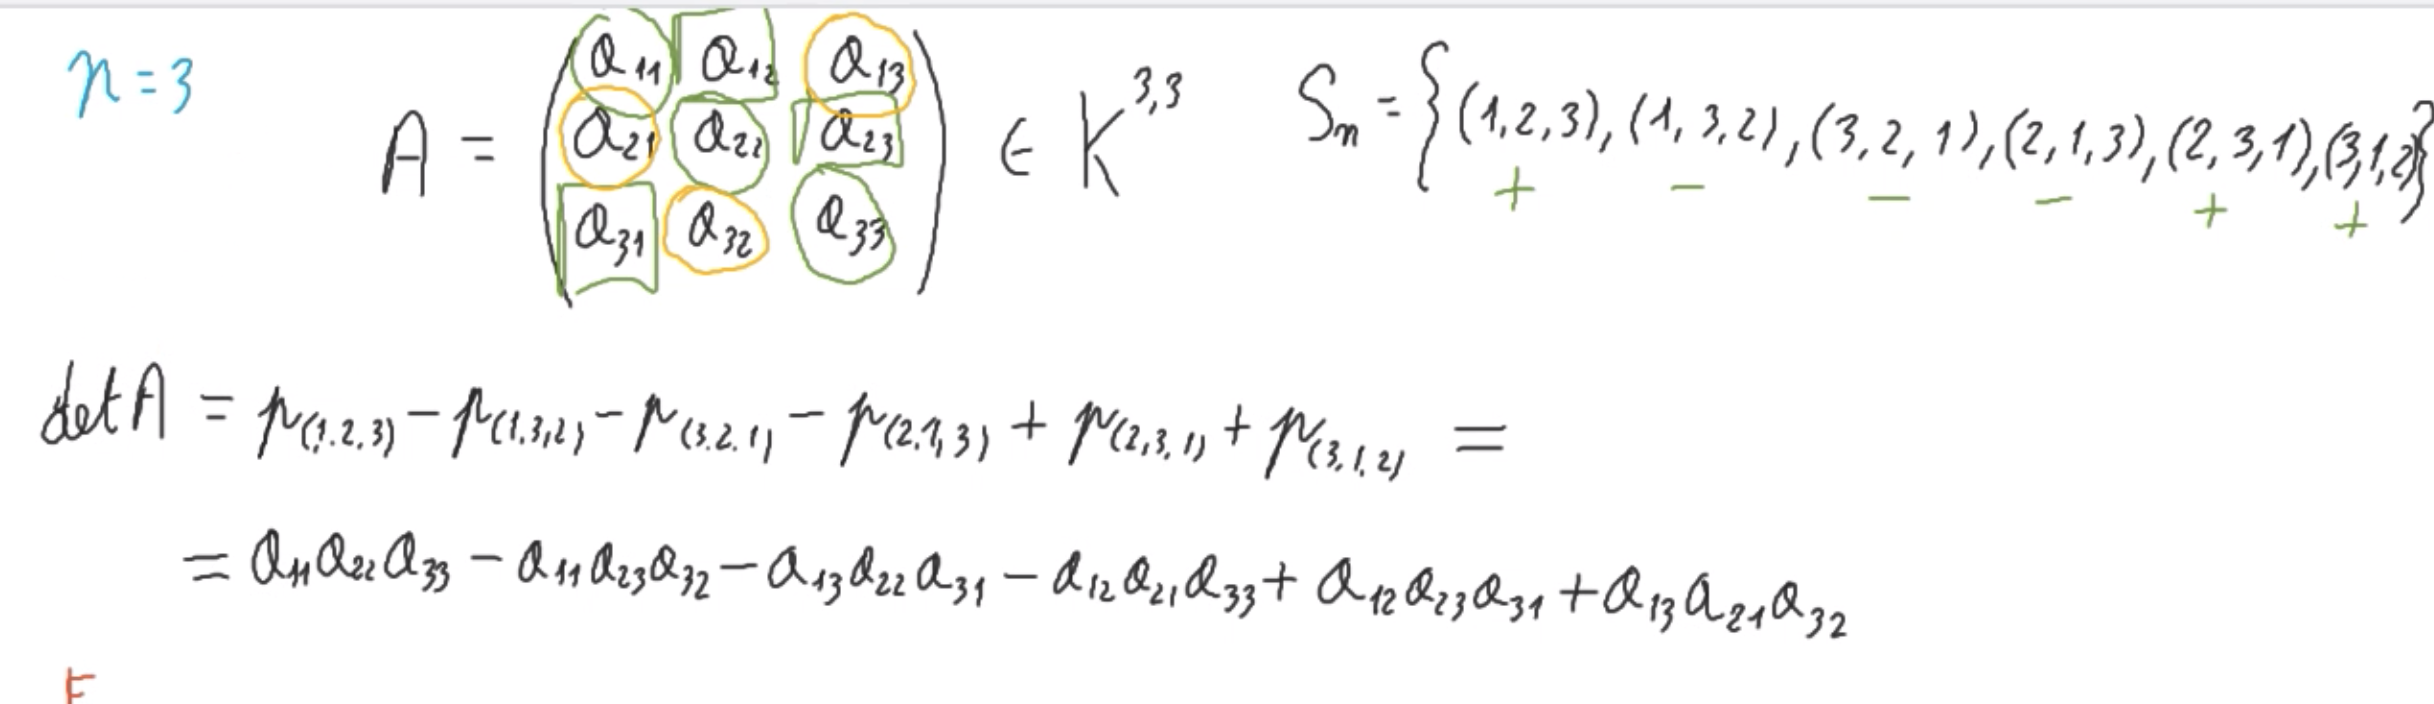 n=3
A = ( a₁₁ a₁₂ a₁₃
a₂₁ a₂₂ a₂₃
a₃₁ a₃₂ a₃₃ ) ∈ K³,³ Sₙ = {(1,2,3), (1,3,2), (3,2,1), (2,1,3), (2,3,1), (3,1,2)}
+ − − − + +
det A = p₍₁.₂.₃₎ − p₍₁.₃,₂₎ − p₍₃.₂.₁₎ − p₍₂.₁,₃₎ + p₍₂,₃.₁₎ + p₍₃.₁.₂₎ =
= a₁₁a₂₂a₃₃ − a₁₁a₂₃a₃₂ − a₁₃a₂₂a₃₁ − a₁₂a₂₁a₃₃ + a₁₂a₂₃a₃₁ + a₁₃a₂₁a₃₂